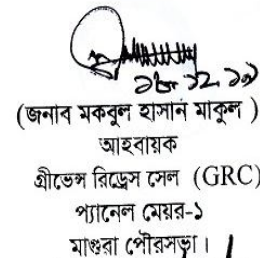 ১৮.১২.১৭
(জনাব মকবুল হাসান মাকুল )
আহবায়ক
গ্রীভেন্স রিড্রেস সেল (GRC)
প্যানেল মেয়র-১
মাগুরা পৌরসভা।